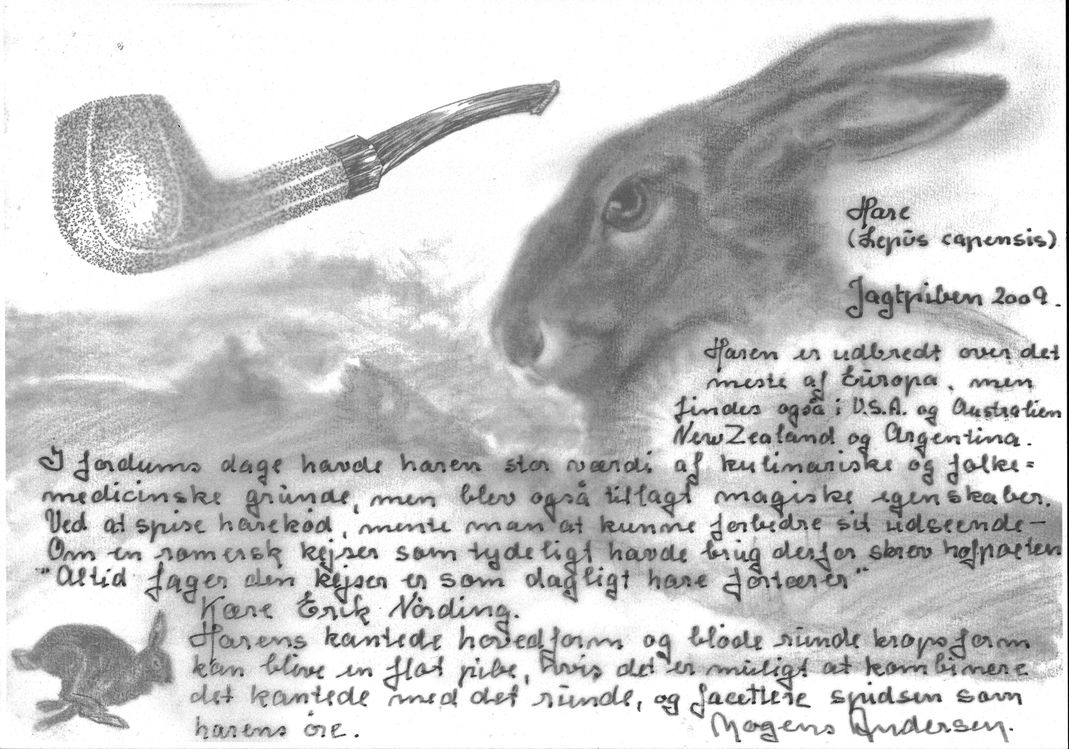 Hare
(Lepus capensis)
Jagtpiben 2009.
Haren er udbredt over det
meste af Europa, men
findes også i U.S.A. og Australien
New Zealand og Argentina.
I fordums dage havde haren stor værdi af kulinariske og folke=
medicinske grunde, men blev også tillagt magiske egenskaber.
Ved at spise harekød, mente man at kunne forbedre sit udseende-
Om en romersk kejser som tydeligt havde brug derfor skrev hofpoeten
"Altid fager den kejser er som dagligt hare fortærer"
Kære Erik Nørding.
Harens kantede hovedform og bløde runde kropsform
kan blive en flot pibe, hvis det er muligt at kombinere
det kantede med det runde, og facettere spidsen som
harens øre.
Mogens Andersen.